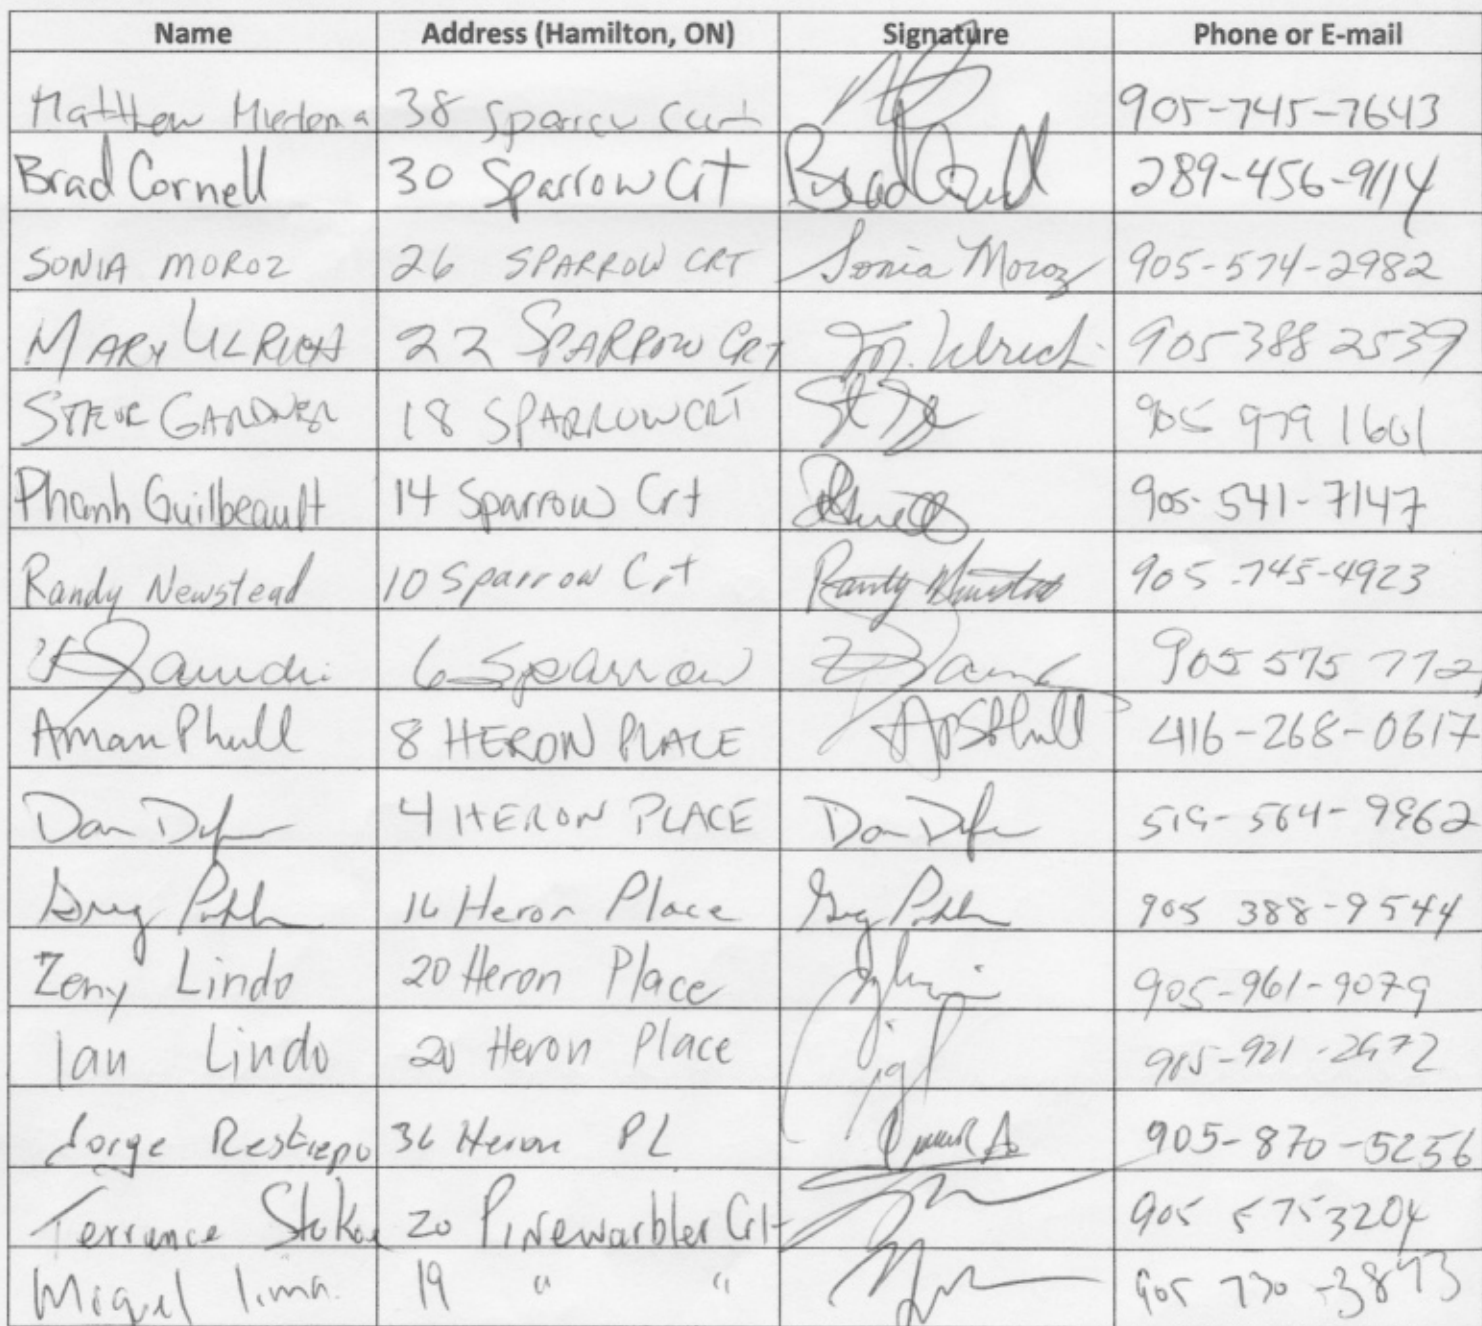 Name Address (Hamilton, ON) Signature Phone or E-mail
Matthew 38 Sparrow 905-745-7643
Brad Cornell 30 Sparrow Crt Brad Cornell 289-456-9114
SONIA MOROZ 26 SPARROW CRT Sonia Moroz 905-574-2982
MARY ULRICH 22 SPARROW CRT M. Ulrich 905 388 2539
STEVE GARDNER 18 SPARROW CRT 905 979 1601
Phanh Guilbeault 14 Sparrow Crt 905-541-7147
Randy Newstead 10 Sparrow Crt Randy Newstead 905-745-4923
6 Sparrow 905 575 772
Aman Phull 8 HERON PLACE APSPhull 416-268-0617
Dan 4 HERON PLACE Dan
Greg 16 Heron Place Greg 905 388-9544
Zeny Lindo 20 Heron Place 905-961-9079
Ian Lindo 20 Heron Place
Jorge Restrepo 36 Heron PL 905-870-5256
Terrance 20 Pinewarbler Crt 905 575 3204
Miguel Lima. 19 " " 905 730-3893